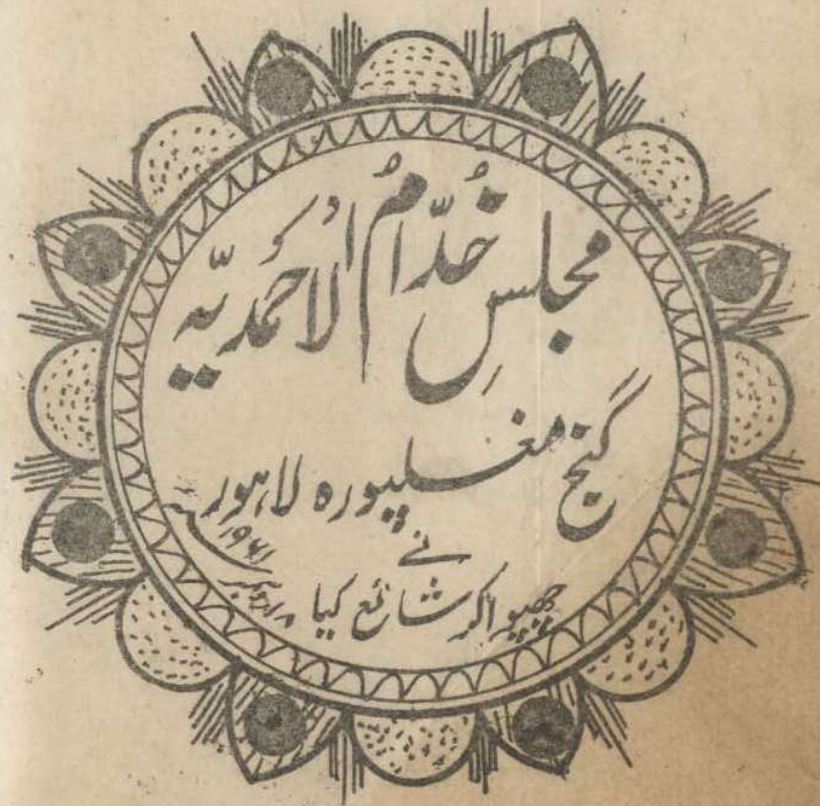 مجلسِ خُدّامُ الاَحمَدیّہ
گنج مغلپورہ لاہور
نے
چھپوا کر شائع کیا